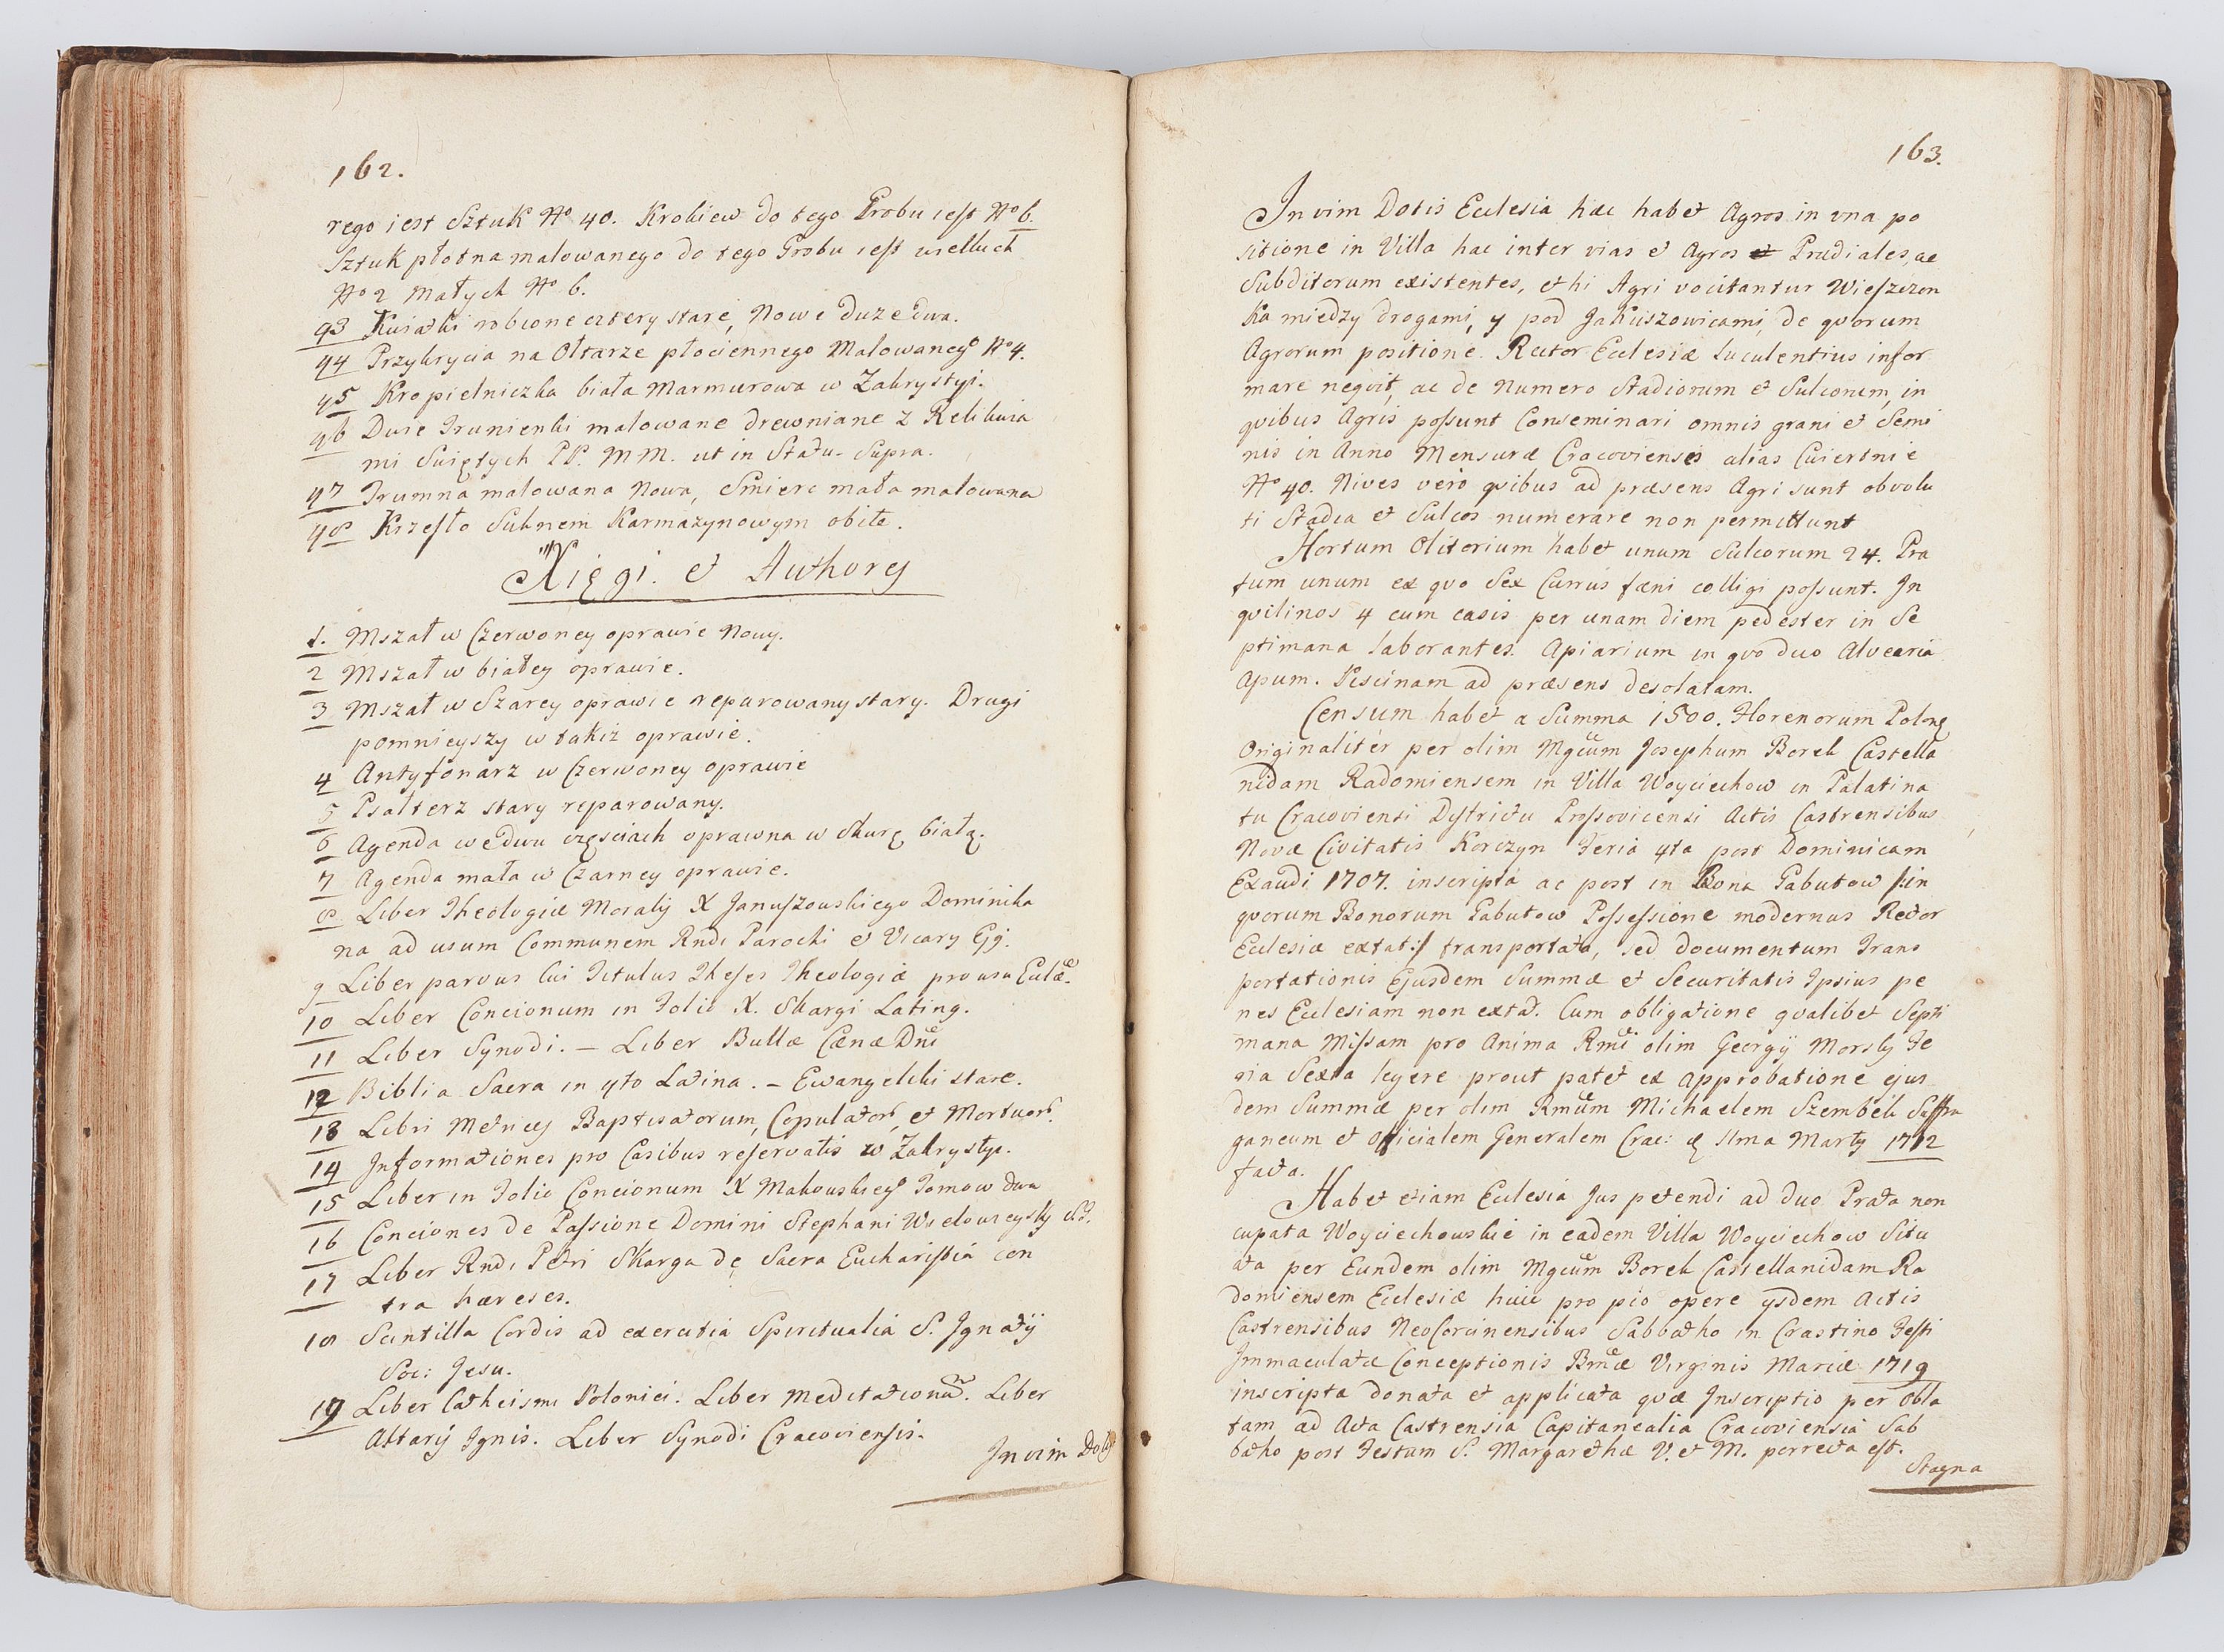 162.
rego iest Sztuk No 40. Krokiew do tego Grobu iest No 6.
Sztuk płotna malowanego do tego Grobu iest wielkich
No 2 Małych No 6.
43 Kwiatki robione cztery stare, Nowe duże dwa.
44 Przykrycia na Ołtarze płociennego Malowaneg° No 4.
45 Kropielniczka biała Marmurowa w Zakrystyi.
46 Dwie Trunienki malowane drewniane z Relikwia
mi Swiętych PP. MM. ut in Statu Supra.
47 Trumna malowana Nowa, Smierc mała malowana
48 Krzesło Suknem Karmazynowym obite.
Xięgi. et Authores
1. Mszał w Czerwoney oprawie Nowy.
2 Mszał w białey oprawie.
3 Mszał w Szarey oprawie reparowany stary. Drugi
pomnieyszy w takiż oprawie.
4 Antyfonarz w Czerwoney oprawie
5 Psałterz stary reparowany.
6 Agenda we dwu częsciach oprawna w Skurę białą.
7 Agenda mała w Czarney oprawie.
8 Liber Theologiæ Moralis X Januszowskiego Dominika
na ad usum Communem Rndi Parochi et Vicarÿ Ejs.
9 Liber parvus cui Titulus Theses Theologiæ pro usu Eclæ.
10 Liber Concionum in Folio X. Skargi Lating.
11 Liber Synodi. – Liber Bullæ Cænæ Dni
12 Biblia Sacra in 4to Latina. – Ewangeliki stare.
13 Libri Metrices Baptisatorum, Copulator, et Mortuor.
14 Informationes pro Casibus reservatis w Zakrystyi.
15 Liber in Folio Concionum X Makowskieg° Tomow dwa
16 Conciones de Passione Domini Stephani
17 Liber Rndi Petri Skarga de Sacra Eucharistia con
tra hæreses.
18 Scintilla Cordis ad exercitia Spiritualia S. Ignatÿ
Soc: Jesu.
19 Liber Cathcismi Polonici. Liber Meditationũ. Liber
Altarÿ Ignis. Liber Synodi Cracoviensis.
In vim Dotis
163.
In vim Dotis Ecclesia hæc habet Agros in una po
sitione in Villa hac inter vias et Agros Prædiales, ac
Subditorum existentes, et hi Agri vocitantur Wieszczon
ka miedzy drogami, y pod Jakuszowicami, de qvorum
Agrorum positione. Rector Ecclesiæ luculentius infor
mare neqvit, ac de Numero Stadiorum et Sulconum, in
qvibus Agris possunt Conseminari omnis grani et Semi
nis in Anno Mensuræ Cracoviensis alias Cwiertnie
No 40. Nives verò qvibus ad præsens Agri sunt obvolu
ti Stadia et Sulcos numerare non permittunt
Hortum Olitorium habet unum Sulcorum 24. Pra
tum unum ex qvo Sex Currus fæni colligi possunt. In
qvilinos 4 cum casis per unam diem pedester in Se
ptimana laborantes. Apiarium in qvo duo Alvearia
Apum. Piscinam ad præsens desolatam.
Censum habet a Summa 1500. Florenorum Polonę
Originalitèr per olim Mgcum Josephum Borek Castella
nidam Radomiensem in Villa Woyciechow in Palatina
tu Cracoviensi Dystrictu Prossovicensi Actis Castrensibus
Novæ Civitatis Korczyn Feria 4ta post Dominicam
Exaudi 1707. inscripta ac post in Bona Gabutow /:in
qvorum Bonorum Gabutow Possessione modernus Rector
Ecclesiæ extat:/ transportata, sed documentum Trans
portationis Ejusdem Summæ et Securitatis Ipsius pe
nes Ecclesiam non extat. Cum obligatione qvalibet Septi
mana Missam pro Anima Rmi olim Georgÿ Morsky Fe
ria Sexta legere prout patet ex Approbatione ejus
dem Summæ per olim Rmum Michaelem Szembek Suffra
ganeum et Officialem Generalem Crac: 1ma Marty 1712
facta.
Habet etiam Ecclesia Jus petendi ad duo Prata non
cupata Woyciechowskie in eadem Villa Woyciechow Situ
ata per Eundem olim Mgcum Borek Castellanidam Ra
domiensem Ecclesiæ huic pro pio opere ysdem Actis
Castrensibus NeoCorcinensibus Sabbatho in Crastino Festi
Immaculatæ Conceptionis Bmæ Virginis Mariæ 1719
inscripta donata et applicata qvæ Inscriptio per Obla
tam ad Acta Castrensia Capitanealia Cracoviensia Sab
batho post Festum S. Margarethæ V. et M. porrecta est.
Stagna